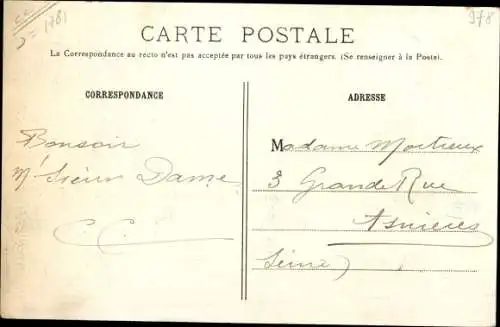 CC
2=1781
978
CARTE POSTALE
La Correspondance au recto n'est pas acceptée par tous les pays étrangers. (Se renseigner à la Poste).
CORRESPONDANCE
Bonsoir
M' Dame
C. C.
ADRESSE
Madame Mortreux
3 Grande Rue
Asnières
Seine)